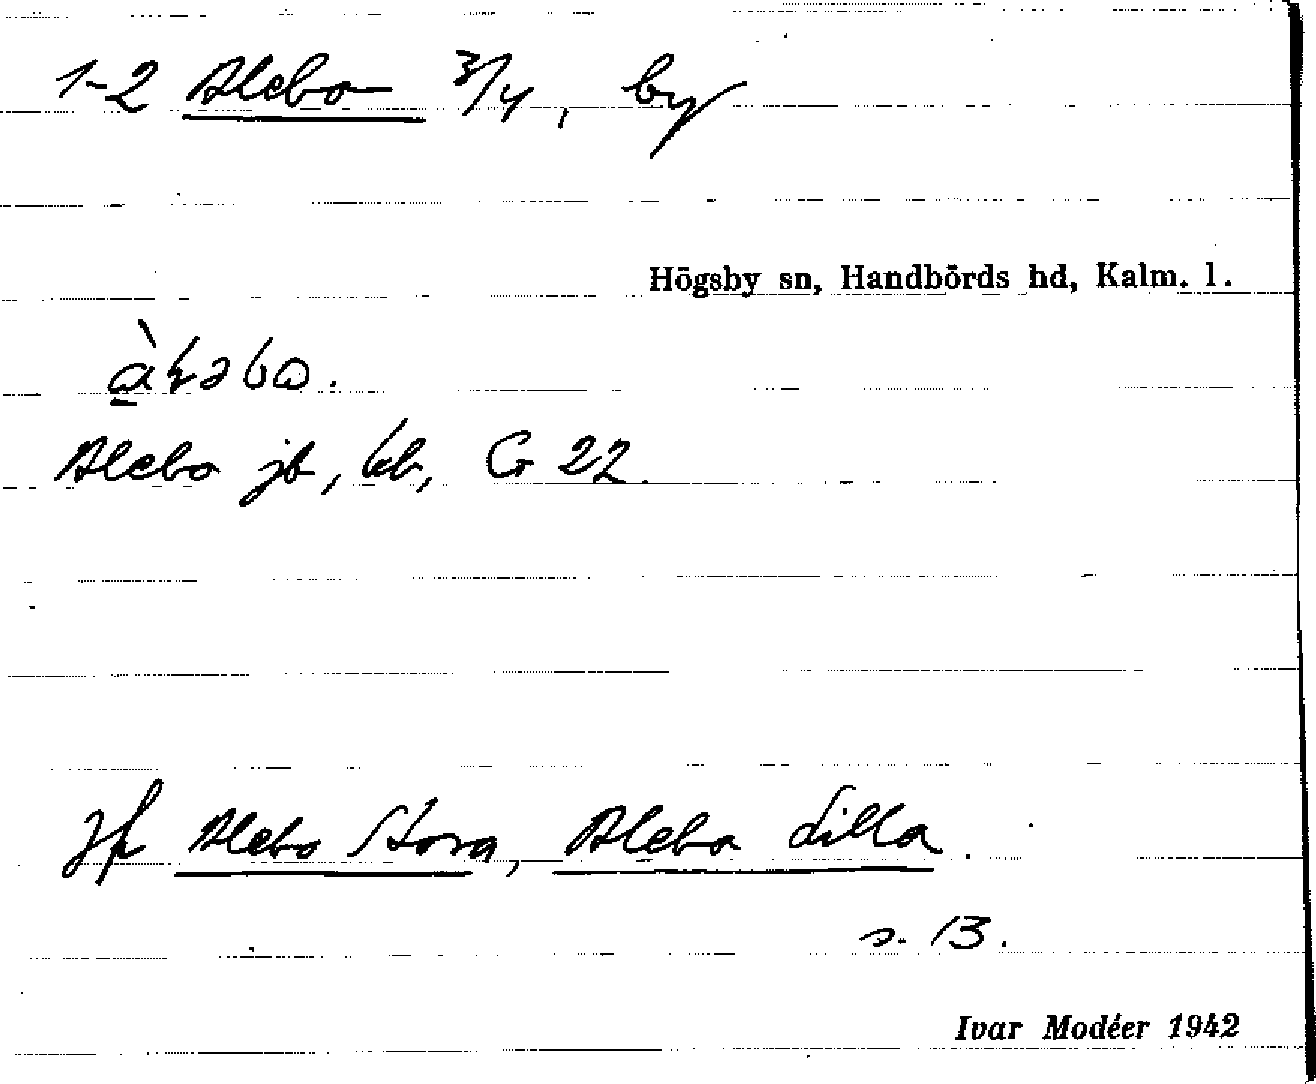 1-2 Alebo 3/4, by
Högsby sn, Handbörds hd, Kalm. l.
Alebo jb, kb, G 22.
Jfr Alebo Stora, Alebo Lilla.
s. 13.
Ivar Modéer 1942